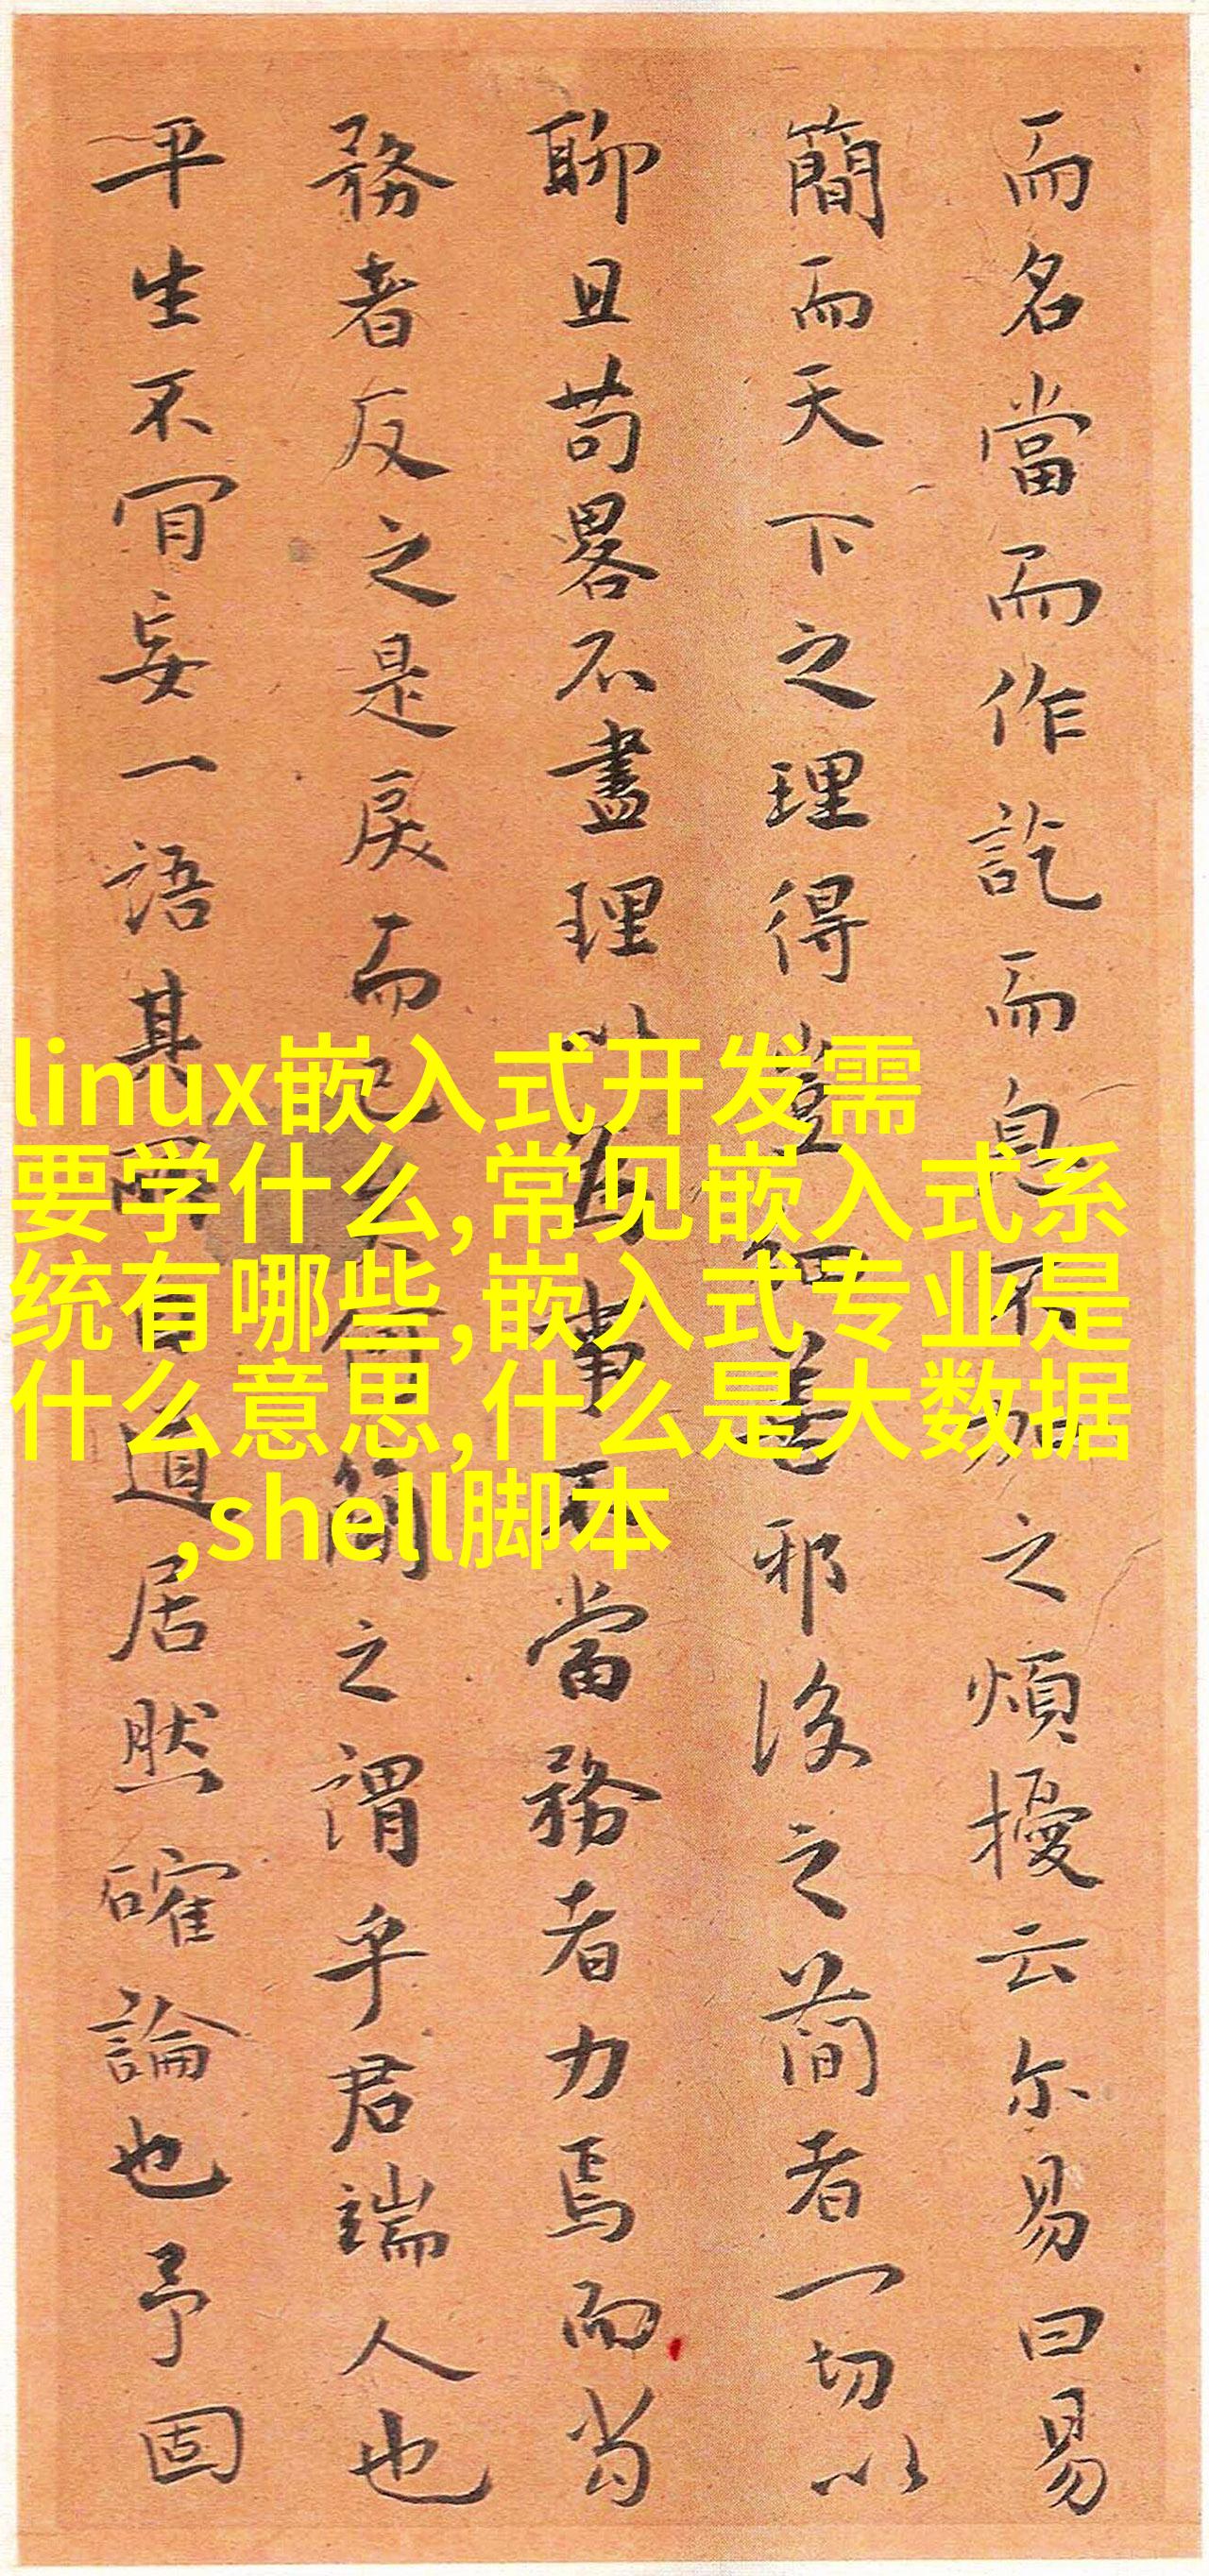 而名當而作訖而息不易之煩擾云尔易曰易
簡而天下之理得豈細善邪後之簡者一切以
聊且苟畧不盡理以為事不當務者力焉而當
務者反之是戾而已矣何簡之謂乎君端人也
平生不肎妄一語其所自道居然確論也予固
linux嵌入式开发需
要学什么,常见嵌入式系
统有哪些,嵌入式专业是
什么意思,什么是大数据
,shell脚本